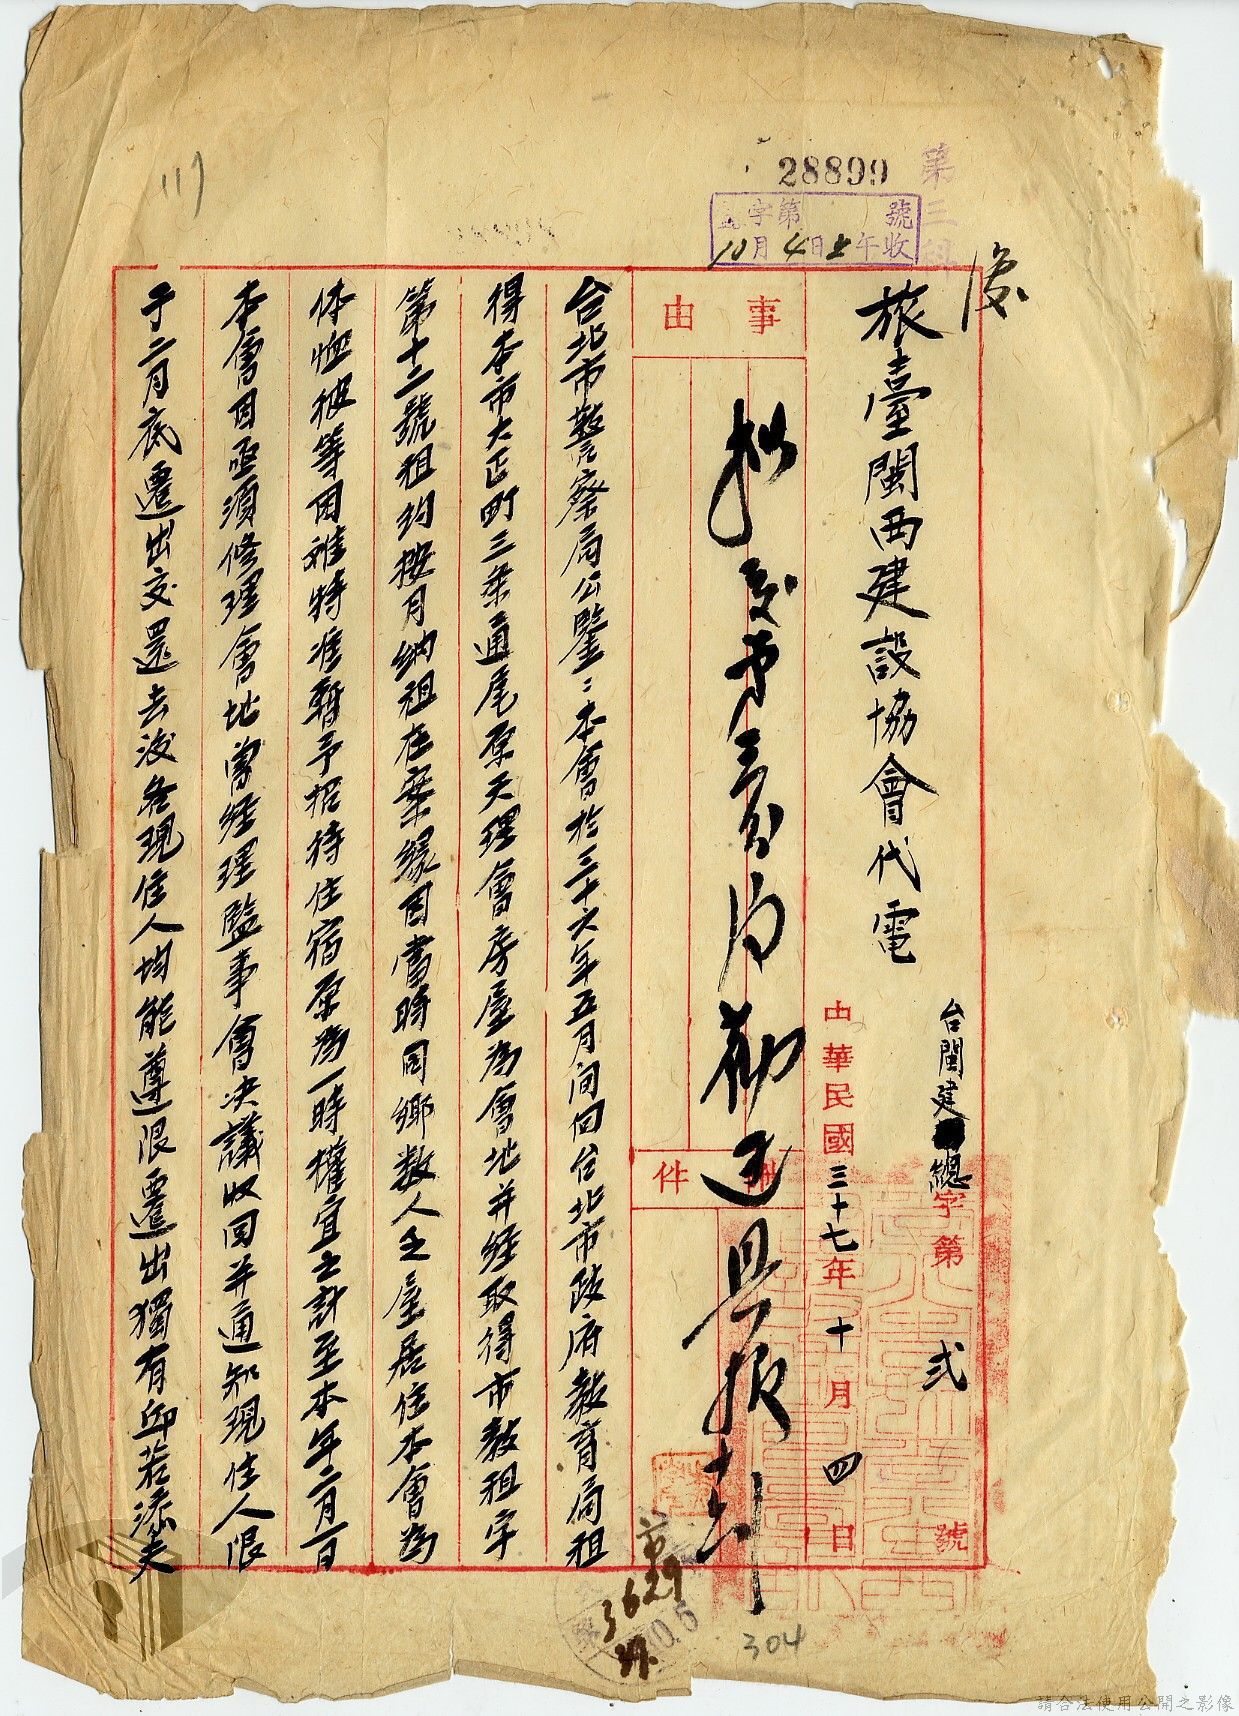 28899
第三科
字第 號
10月4日上午收
117
旅臺閩西建設協會代電
台閩建總字第 弍 號
中華民國三十七年十月四日
事由
附件
台北市警察局公鑒:本會於三十六年五月間向台北市政府教育局租
得本市大正町三条通尾原天理會房屋為會址并經取得市教租字
第十二號租約按月納租在案緣因當時同鄉數人乏屋居住本會為
体恤彼等困难特准暫予招待住宿原為一時權宜之計至本年二月一日
本會因亟須修理會址曾經理監事會決議收回并通知現住人限
于二月底遷出交還去後各現住人均能遵限遷出獨有邱若添夫
3629
10.5
304
請合法使用公開之影像